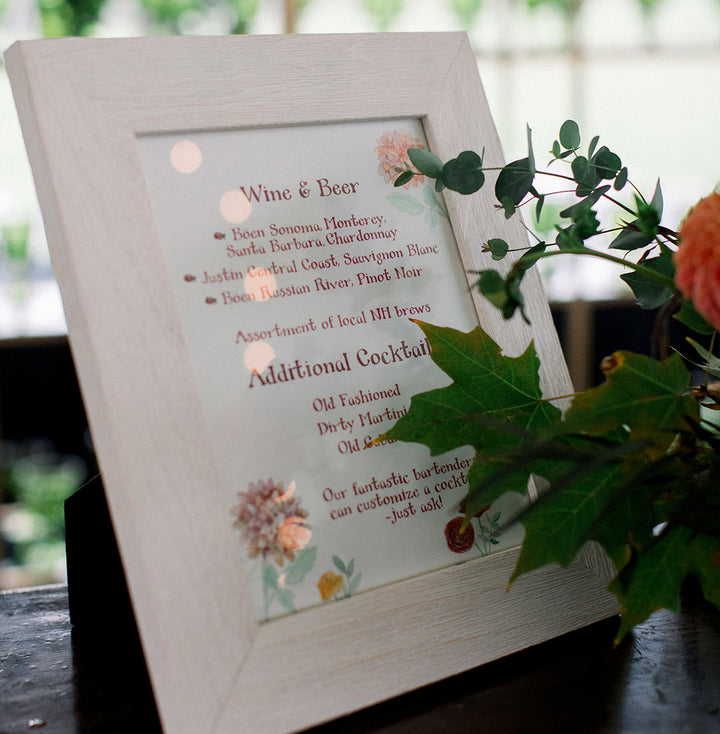 Wine & Beer
Boen Sonoma, Monterey,
Santa Barbara, Chardonnay
Justin Central Coast, Sauvignon Blanc
Boen Russian River, Pinot Noir
Assortment of local NH brews
Additional
Old Fashioned
Dirty Martini
Old
Our fantastic bartenders
can customize a
-just ask!